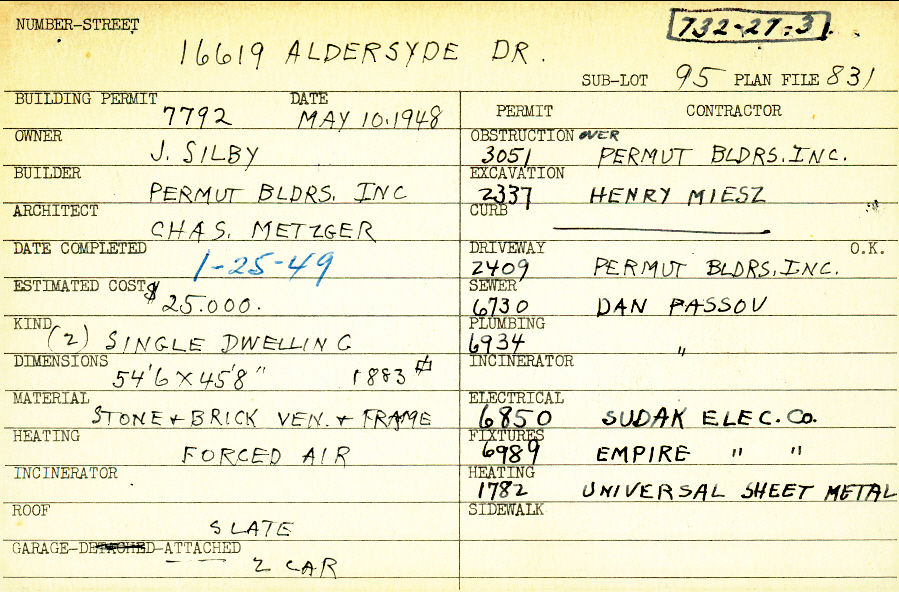 NUMBER-STREET
732-27-31
16619 ALDERSYDE DR.
SUB-LOT 95 PLAN FILE 831
BUILDING PERMIT DATE
7792 MAY 10.1948
OWNER
J. SILBY
BUILDER
PERMUT BLDRS. INC
ARCHITECT
CHAS. METZGER
DATE COMPLETED
1-25-49
ESTIMATED COST $
25.000.
KIND
(2) SINGLE DWELLING
DIMENSIONS
54'6 X 45'8" 1883
MATERIAL
STONE + BRICK VEN. + FRAME
HEATING
FORCED AIR
INCINERATOR
ROOF
SLATE
GARAGE-DETACHED-ATTACHED
2 CAR
PERMIT CONTRACTOR
OBSTRUCTION OVER
3051 PERMUT BLDRS. INC.
EXCAVATION
2337 HENRY MIESZ
CURB
DRIVEWAY O.K.
2409 PERMUT BLDRS, INC.
SEWER
6730 DAN PASSOV
PLUMBING
6934 "
INCINERATOR
ELECTRICAL
6850 SUDAK ELEC. Co.
FIXTURES
6989 EMPIRE " "
HEATING
1782 UNIVERSAL SHEET METAL
SIDEWALK